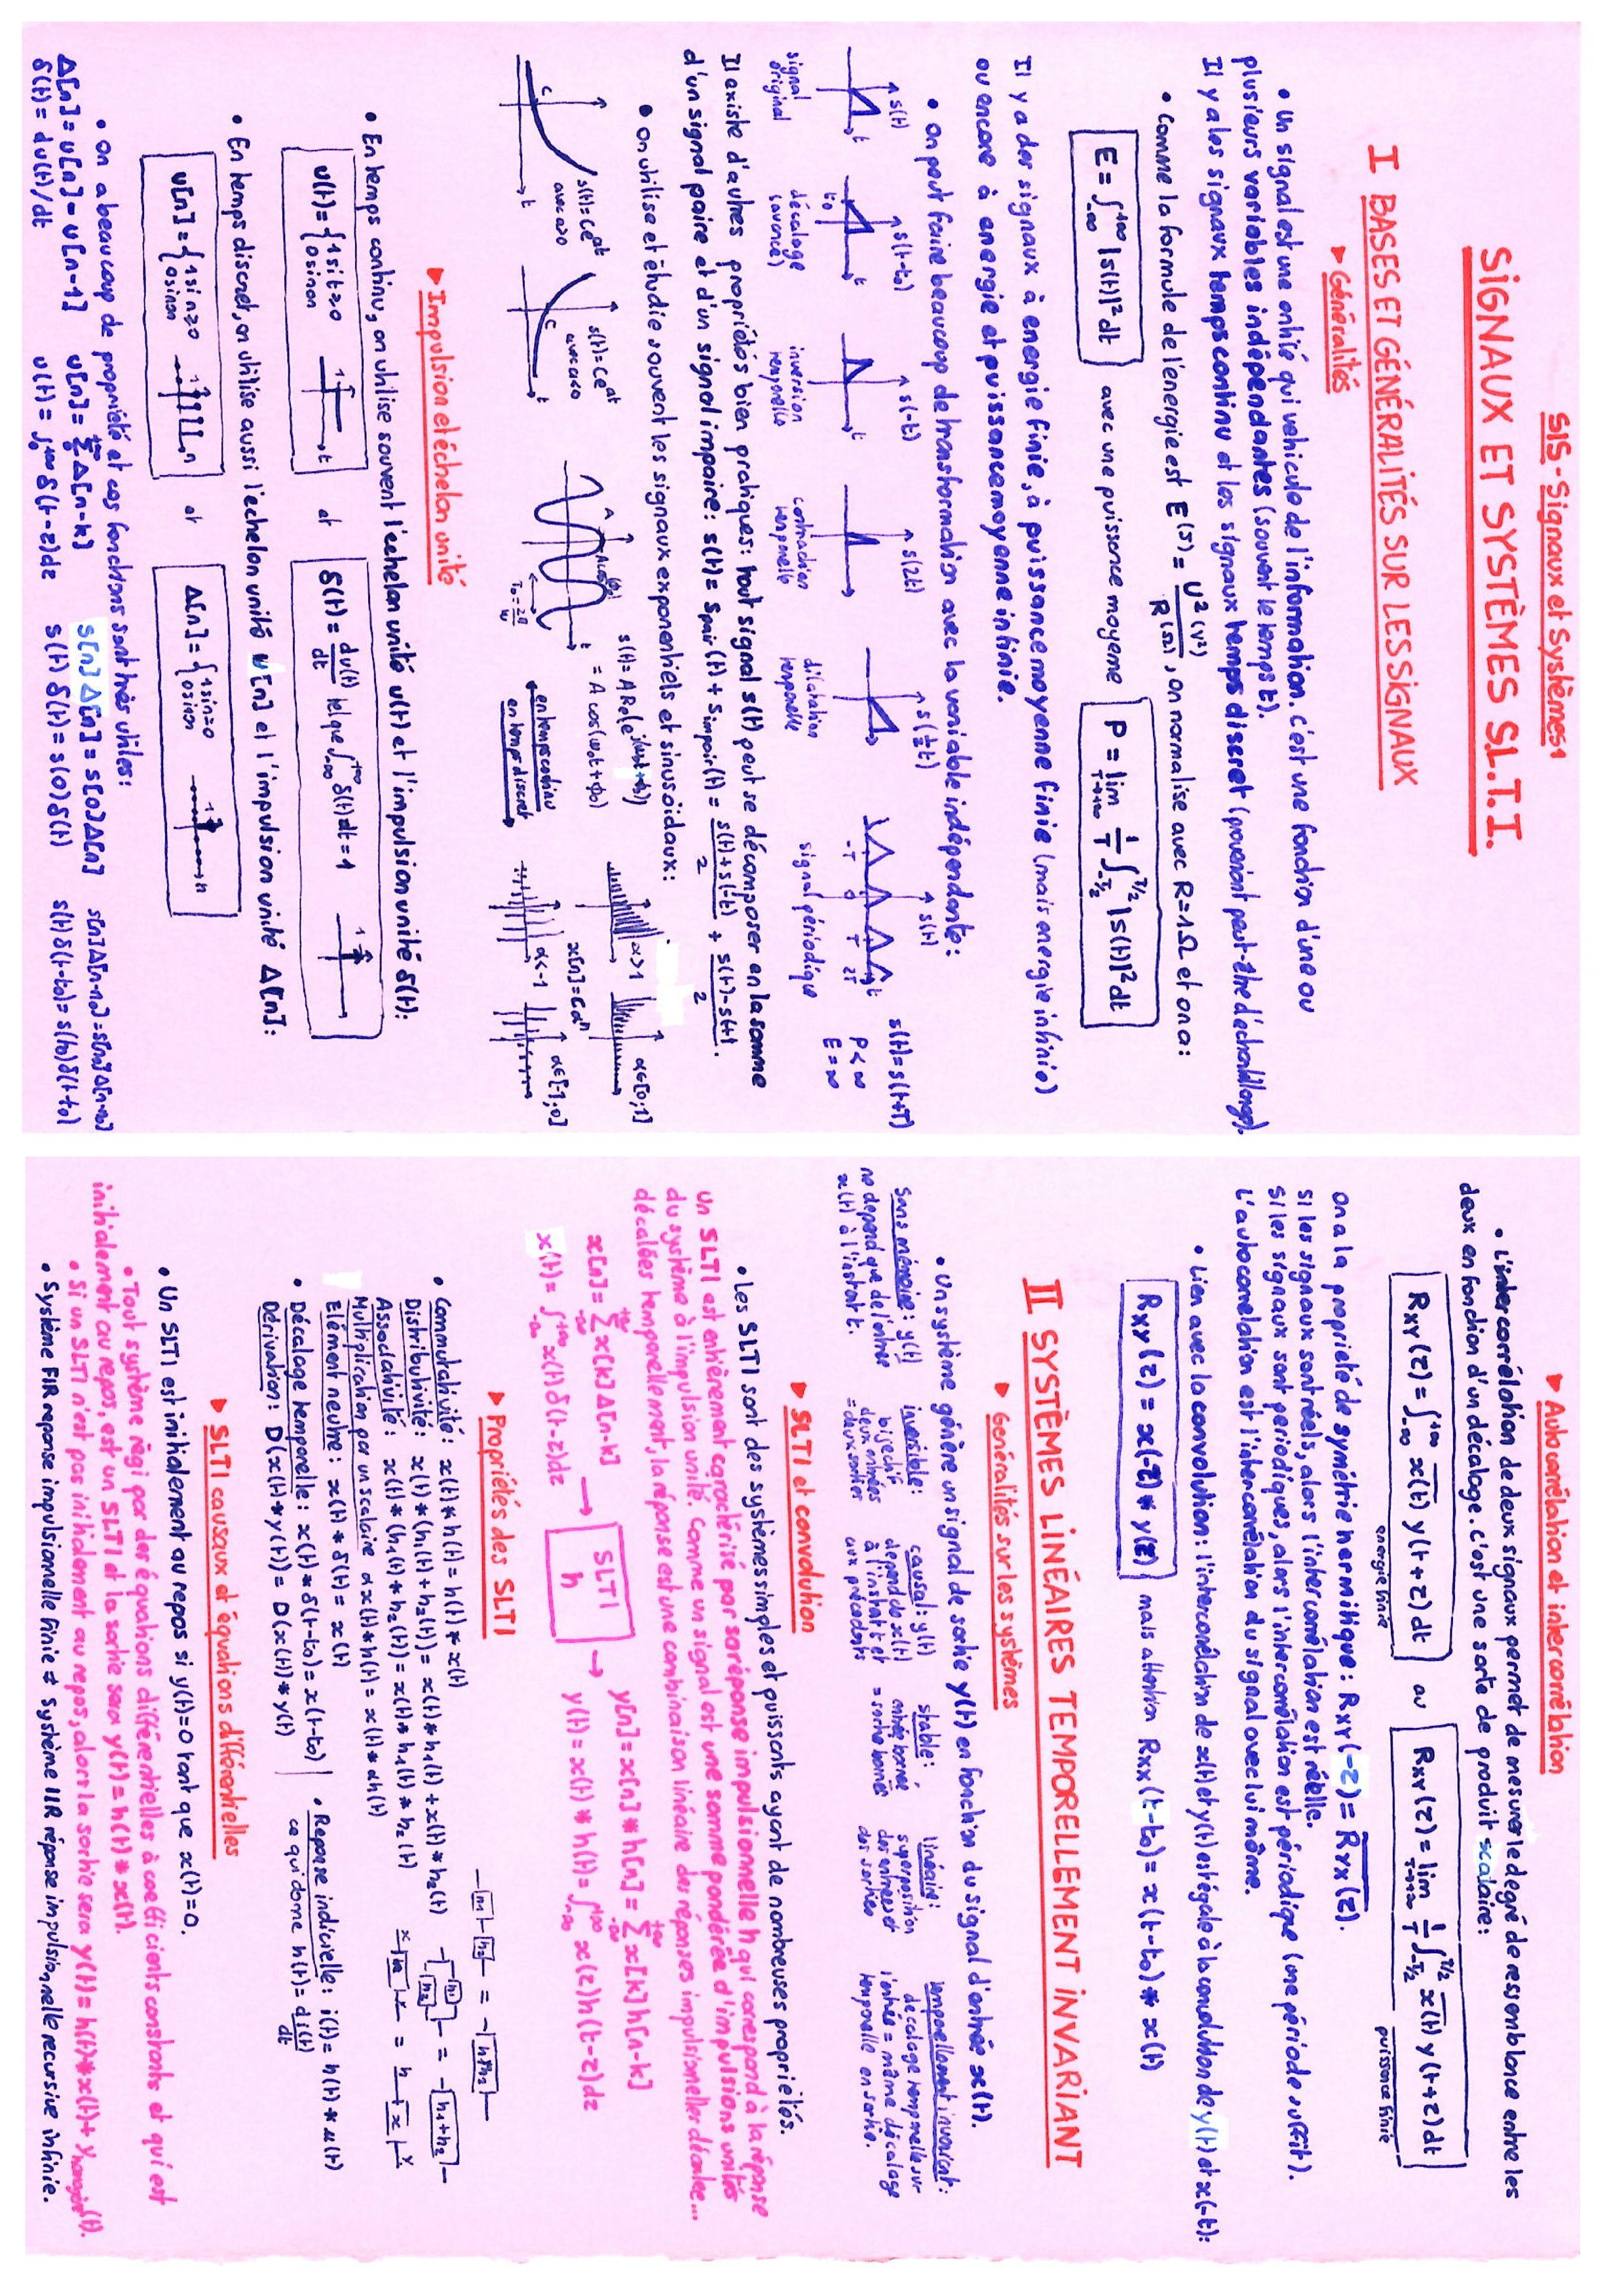 SIS - Signaux et Systèmes 1
SIGNAUX ET SYSTÈMES S.L.T.I.
I BASES ET GÉNÉRALITÉS SUR LES SIGNAUX
▶ Généralités
• Un signal est une entité qui vehicule de l'information. C'est une fonction d'une ou
plusieurs variables indépendantes (souvent le temps t).
Il y a les signaux temps continu et les signaux temps discret (provenant peut-être d'échantillonage).
• Comme la formule de l'énergie est E (J) = U² (V²) / R (Ω), on normalise avec R=1Ω et on a:
E = ∫_{-∞}^{+∞} |s(t)|² dt avec une puissance moyenne P = lim_{T→+∞} 1/T ∫_{-T/2}^{T/2} |s(t)|² dt
Il y a des signaux à energie finie, à puissance moyenne finie (mais energie infinie)
ou encore à energie et puissance moyenne infinie.
• On peut faire beaucoup de transformation avec la variable indépendante:
s(t) s(t-t₀) s(-t) s(2t) s(½t) s(t) s(t)=s(t+T)
t t₀ t t t -T 0 T 2T t P<∞
E=∞
signal original
décalage (avance)
inversion temporelle
contraction temporelle
dilatation temporelle
signal périodique
Il existe d'autres propriétés bien pratiques: tout signal s(t) peut se décomposer en la somme
d'un signal paire et d'un signal impaire: s(t) = s_pair(t) + s_impair(t) = (s(t)+s(-t))/2 + (s(t)-s(-t))/2.
• On utilise et étudie souvent les signaux exponentiels et sinusoïdaux:
s(t)=Ce^{at} avec a>0
C t
s(t)=Ce^{at} avec a<0
C t
A Acos(ϕ₀) t T₀=2π/ω
s(t)= A Re(e^{j(ω₀t+ϕ₀)})
= A cos(ω₀t+ϕ₀)
en temps continu
en temps discret
α>1 α∈[0;1]
x[n]=Cαⁿ
α<-1 α∈[-1;0]
▶ Impulsion et échelon unité
• En temps continu, on utilise souvent l'echelon unité u(t) et l'impulsion unité δ(t):
u(t)= {1 si t≥0 0 sinon 1 t et δ(t)= du(t)/dt tel que ∫_{-∞}^{+∞} δ(t)dt = 1 1
• En temps discret, on utilise aussi l'echelon unité u[n] et l'impulsion unité Δ[n]:
u[n]= {1 si n≥0 0 sinon 1 n et Δ[n]= {1 si n=0 0 sinon 1 n
• On a beaucoup de propriété et ces fonctions sont très utiles:
Δ[n]= u[n]-u[n-1] u[n]= Σ_{0}^{+∞} Δ[n-k] s[n]Δ[n]= s[0]Δ[n] s[n]Δ[n-n₀]=s[n₀]Δ[n-n₀]
δ(t)= du(t)/dt u(t)= ∫_{0}^{+∞} δ(t-τ)dτ s(t) δ(t)= s(0)δ(t) s(t)δ(t-t₀)= s(t₀)δ(t-t₀)
▶ Autocorrélation et intercorrélation
• L'intercorrélation de deux signaux permet de mesurer le degré de ressemblance entre les
deux en fonction d'un décalage. C'est une sorte de produit scalaire:
R_XY(τ)= ∫_{-∞}^{+∞} x̅(̅t̅)̅ y(t+τ)dt ou R_XY(τ)= lim_{T→+∞} 1/T ∫_{-T/2}^{T/2} x̅(̅t̅)̅ y(t+τ)dt
energie finie puissance finie
On a la proprieté de symétrie hermitique: R_XY(-τ)= R̅_̅Y̅X̅(̅τ̅)̅.
Si les signaux sont réels, alors l'intercorrélation est réelle.
Si les signaux sont periodiques, alors l'intercorrélation est périodique (une période suffit).
L'autocorrelation est l'intercorrélation du signal avec lui même.
• Lien avec la convolution: l'intercorrélation de x(t) et y(t) est égale à la convolution de y(t) et x(-t):
R_XY(τ) = x(-τ) * y(τ) mais attention R_XX(t-t₀)= x(t-t₀) * x(t)
II SYSTÈMES LINÉAIRES TEMPORELLEMENT INVARIANT
▶ Généralités sur les systèmes
• Un système génère un signal de sortie y(t) en fonction du signal d'entrée x(t).
Sans mémoire: y(t) ne depend que de l'entrée x(t) à l'instant t.
inversible: bijectif deux entrées = deux sorties
causal: y(t) depend de x(t) à l'instant t et aux précedents
stable: entrée bornée = sortie bornée
linéaire: superposition des entrées et des sorties
temporellement invariant: décalage temporelle sur l'entrée = même décalage temporelle en sortie.
▶ SLTI et convolution
• Les SLTI sont des systèmes simples et puissants ayant de nombreuses propriétés.
Un SLTI est entièrement caractérisé par sa réponse impulsionnelle h qui correspond à la réponse
du système à l'impulsion unité. Comme un signal est une somme pondérée d'impulsions unités
décalées temporellement, la réponse est une combinaison linéaire des réponses impulsionnelles décalee...
x[n]= Σ_{-∞}^{+∞} x[k]Δ[n-k] → SLTI h → y[n]= x[n]*h[n]= Σ_{-∞}^{+∞} x[k]h[n-k]
x(t)= ∫_{-∞}^{+∞} x(t)δ(t-τ)dτ y(t)= x(t) * h(t)= ∫_{-∞}^{+∞} x(τ)h(t-τ)dτ
▶ Propriétés des SLTI
• Commutativité: x(t)*h(t)= h(t)*x(t)
Distributivité: x(t)*(h₁(t)+h₂(t))= x(t)*h₁(t)+x(t)*h₂(t)
Associativité: x(t)*(h₁(t)*h₂(t))= x(t)*h₁(t)*h₂(t)
Multiplication par un scalaire αx(t)*h(t)= x(t)*αh(t)
Elément neutre: x(t)*δ(t)= x(t)
h₁ h₂ = h₁*h₂
h₁ h₂ = h₁+h₂
x h y = h x y
• Décalage temporelle: x(t)*δ(t-t₀)= x(t-t₀)
Dérivation: D(x(t)*y(t))= D(x(t))*y(t)
• Reponse indicielle: i(t)= h(t)*u(t)
ce qui donne h(t)= di(t)/dt
▶ SLTI causaux et équations différentielles
• Un SLTI est initialement au repos si y(t)=0 tant que x(t)=0.
• Tout système régi par des équations différentielles à coefficients constants et qui est
initialement au repos, est un SLTI et la sortie sera y(t)= h(t)*x(t).
• Si un SLTI n'est pas initialement au repos, alors la sortie sera y(t)= h(t)*x(t)+ y_homogène(t).
• Système FIR reponse impulsionnelle finie ≠ système IIR réponse impulsionnelle recursive infinie.